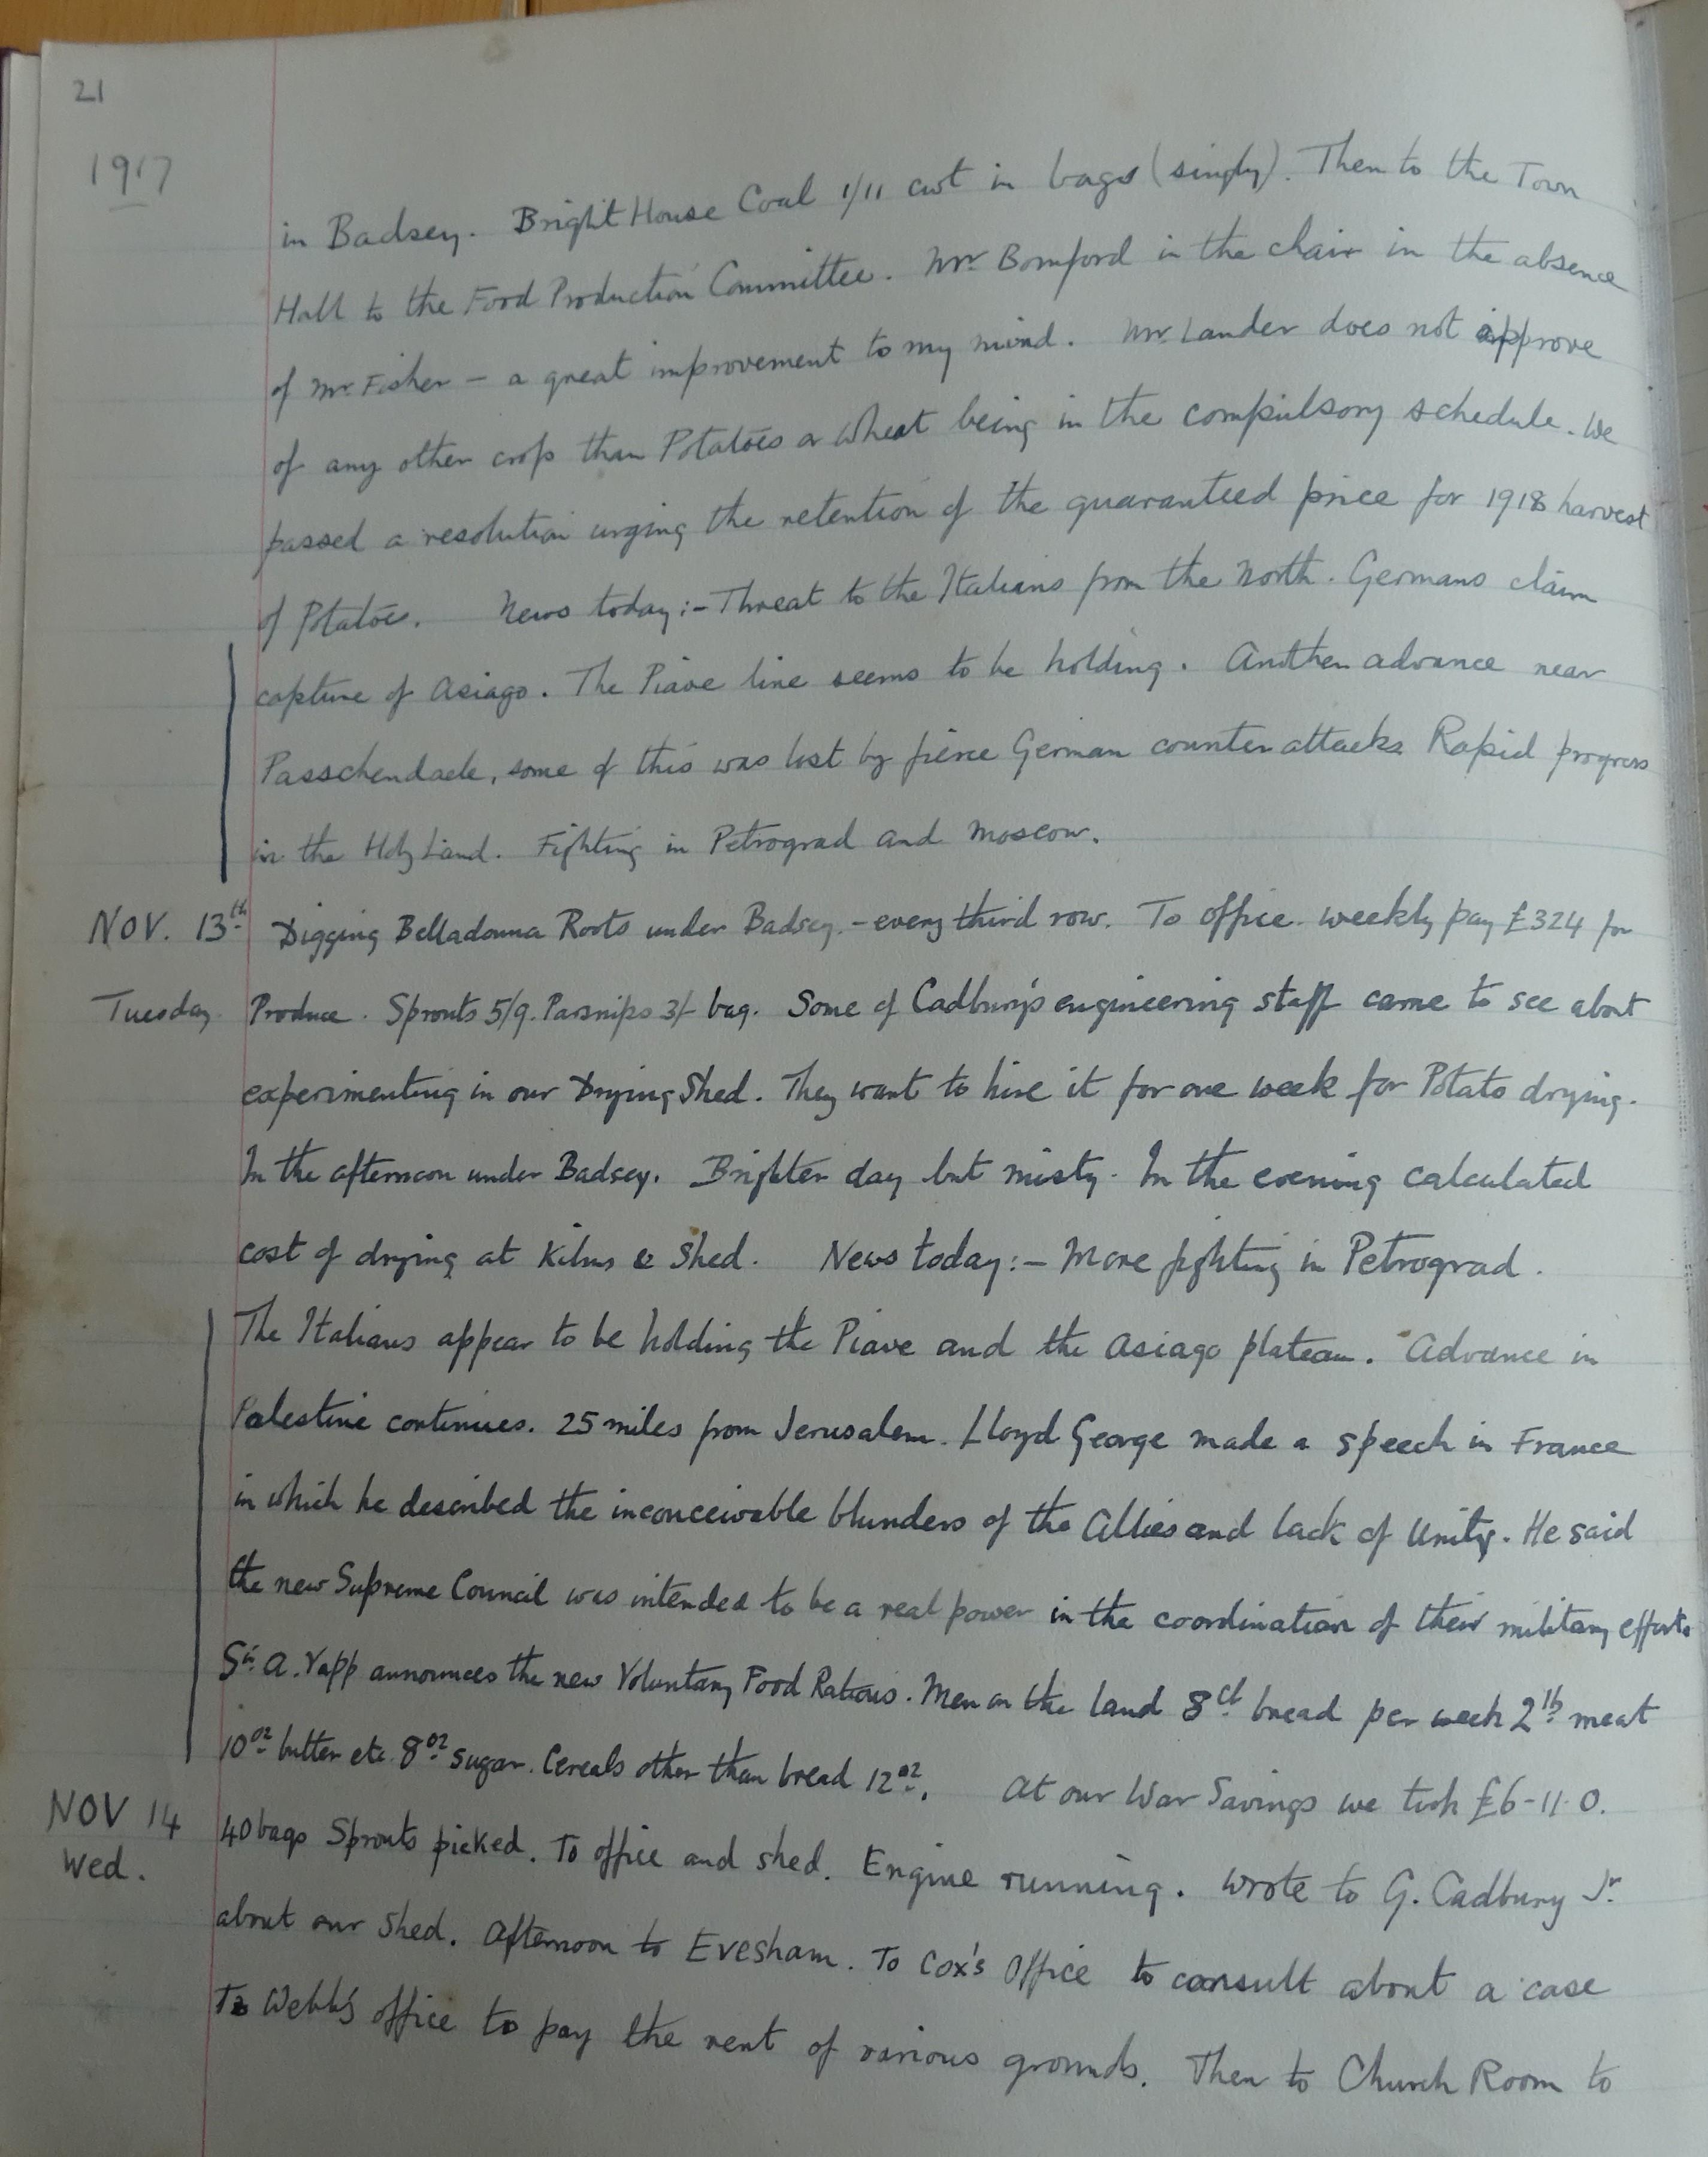 21
1917
in Badsey. Bright House Coal 1/11 cwt in bags (singly). Then to the Town
Hall to the Food Production Committee. Mr Bomford in the chair in the absence
of Mr. Fisher – a great improvement to my mind. Mr Lander does not approve
of any other crop than Potatoes or Wheat being in the compulsory schedule. We
passed a resolution urging the retention of the guaranteed price for 1918 harvest
of Potatoes. News today:- Threat to the Italians from the North. Germans claim
capture of Asiago. The Piave line seems to be holding. Another advance near
Passchendaele, some of this was lost by fierce German counter attacks. Rapid progress
in the Holy Land. Fighting in Petrograd and Moscow.
NOV. 13th Digging Belladonna Roots under Badsey. – every third row. To office. weekly pay £324 for
Tuesday. Produce. Sprouts 5/9. Parsnips 3/- bag. Some of Cadbury's engineering staff came to see about
experimenting in our Drying Shed. They want to hire it for one week for Potato drying.
In the afternoon under Badsey. Brighter day but misty. In the evening calculated
cost of drying at Kilns & Shed. News today:- More fighting in Petrograd.
The Italians appear to be holding the Piave and the Asiago plateau. Advance in
Palestine continues. 25 miles from Jerusalem. Lloyd George made a speech in France
in which he described the inconceivable blunders of the Allies and lack of Unity. He said
the new Supreme Council was intended to be a real power in the coordination of their military efforts
Sir A. Yapp announces the new Voluntary Food Rations. Men on the land 8 bread per week 2lb meat
10oz butter etc. 8oz sugar. Cereals other than bread 12oz. At our War Savings we took £6-11-0.
NOV 14 40 bags Sprouts picked. To office and shed. Engine running. Wrote to G. Cadbury Jr.
Wed. about our shed. Afternoon to Evesham. To Cox's Office to consult about a case
To Webb's office to pay the rent of various grounds. Then to Church Room to